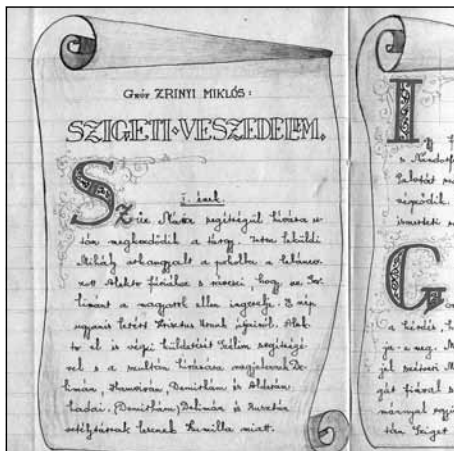 Gróf ZRINYI MIKLÓS:
SZIGETI·VESZEDELEM.
I. ének.
Szűz Mária segítségül hívása u-
tán megkezdődik a tárgy. Isten leküldi
Mihály arkangyalt a pokolba a lelánco-
zott Alekto fúriához s ráveszi, hogy az Szo-
limánt a magyarok ellen ingerelje. E nép
ugyanis letért Krisztus Urnak útjairól. Alek-
to el is végzi küldetését Szélim segítségé-
vel s a szultán hívására megjelennek De-
limán, Kamviván, Demirhám és Alderán
hadai. (Demirhám) Delimán és Rusztán
vetélytársak lesznek Kumilla miatt.
I
s Nándorfe
végződik.
ismerteti
G
a kérdés, h
ja-e meg. M
jel szétveri M
gát fiával s
tán Sziget